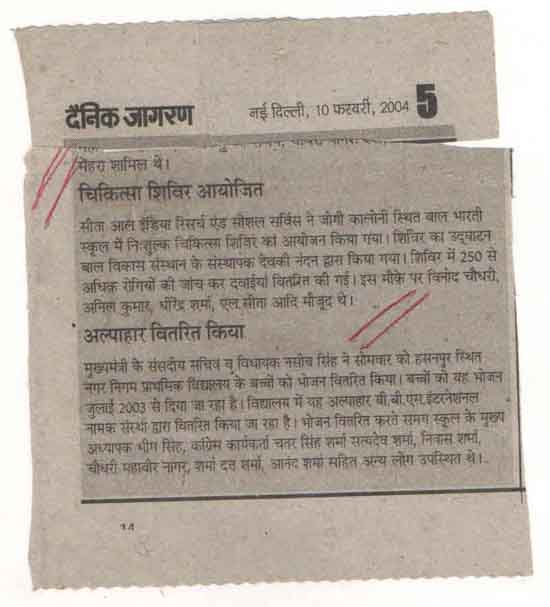 दैनिक जागरण नई दिल्ली, 10 फरवरी, 2004 5
मेहरा शामिल थे।
चिकित्सा शिविर आयोजित
सीता आल इंडिया रिसर्च एंड सोशल सर्विस ने जोगी कालोनी स्थित बाल भारती
स्कूल में निःशुल्क चिकित्सा शिविर का आयोजन किया गया। शिविर का उद्घाटन
बाल विकास संस्थान के संस्थापक देवकी नंदन द्वारा किया गया। शिविर में 250 से
अधिक रोगियों की जांच कर दवाईयां वितरित की गई। इस मौके पर विनोद चौधरी,
अनिल कुमार, धीरेंद्र शर्मा, एल.सीता आदि मौजूद थे।
अल्पाहार वितरित किया
मुख्यमंत्री के संसदीय सचिव व विधायक नसीब सिंह ने सोमवार को हसनपुर स्थित
नगर निगम प्राथमिक विद्यालय के बच्चों को भोजन वितरित किया। बच्चों को यह भोजन
जुलाई 2003 से दिया जा रहा है। विद्यालय में यह अल्पाहार बी.बी.एम.इंटरनेशनल
नामक संस्था द्वारा वितरित किया जा रहा है। भोजन वितरित करते समय स्कूल के मुख्य
अध्यापक भीम सिंह, कांग्रेस कार्यकर्ता चतर सिंह शर्मा सत्यदेव शर्मा, निवास शर्मा,
चौधरी महावीर नागर, शर्मा दत्त शर्मा, आनंद शर्मा सहित अन्य लोग उपस्थित थे।
14